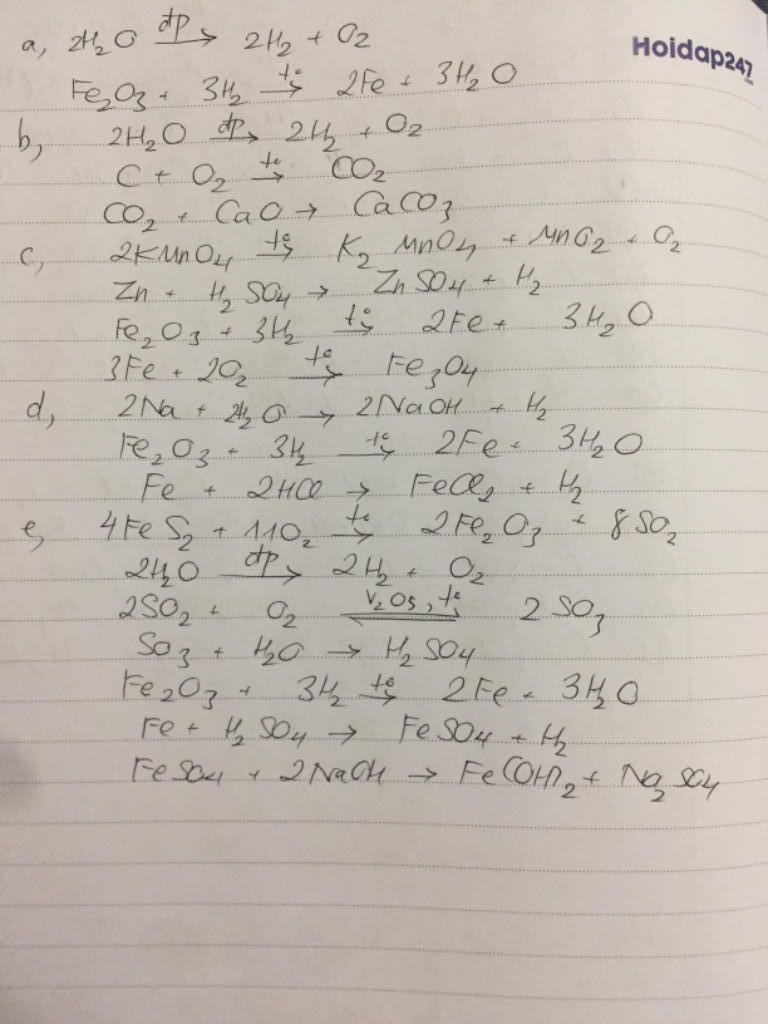 a, 2H₂O đp→ 2H₂ + O₂
Hoidap247.com
Fe₂O₃ + 3H₂ t°→ 2Fe + 3H₂O
b, 2H₂O đp→ 2H₂ + O₂
C + O₂ t°→ CO₂
CO₂ + CaO → CaCO₃
c, 2KMnO₄ t°→ K₂MnO₄ + MnO₂ + O₂
Zn + H₂SO₄ → ZnSO₄ + H₂
Fe₂O₃ + 3H₂ t°→ 2Fe + 3H₂O
3Fe + 2O₂ t°→ Fe₃O₄
d, 2Na + 2H₂O → 2NaOH + H₂
Fe₂O₃ + 3H₂ t°→ 2Fe + 3H₂O
Fe + 2HCl → FeCl₂ + H₂
e, 4FeS₂ + 11O₂ t°→ 2Fe₂O₃ + 8SO₂
2H₂O đp→ 2H₂ + O₂
2SO₂ + O₂ V₂O₅, t°⇌ 2SO₃
SO₃ + H₂O → H₂SO₄
Fe₂O₃ + 3H₂ t°→ 2Fe + 3H₂O
Fe + H₂SO₄ → FeSO₄ + H₂
FeSO₄ + 2NaOH → Fe(OH)₂ + Na₂SO₄